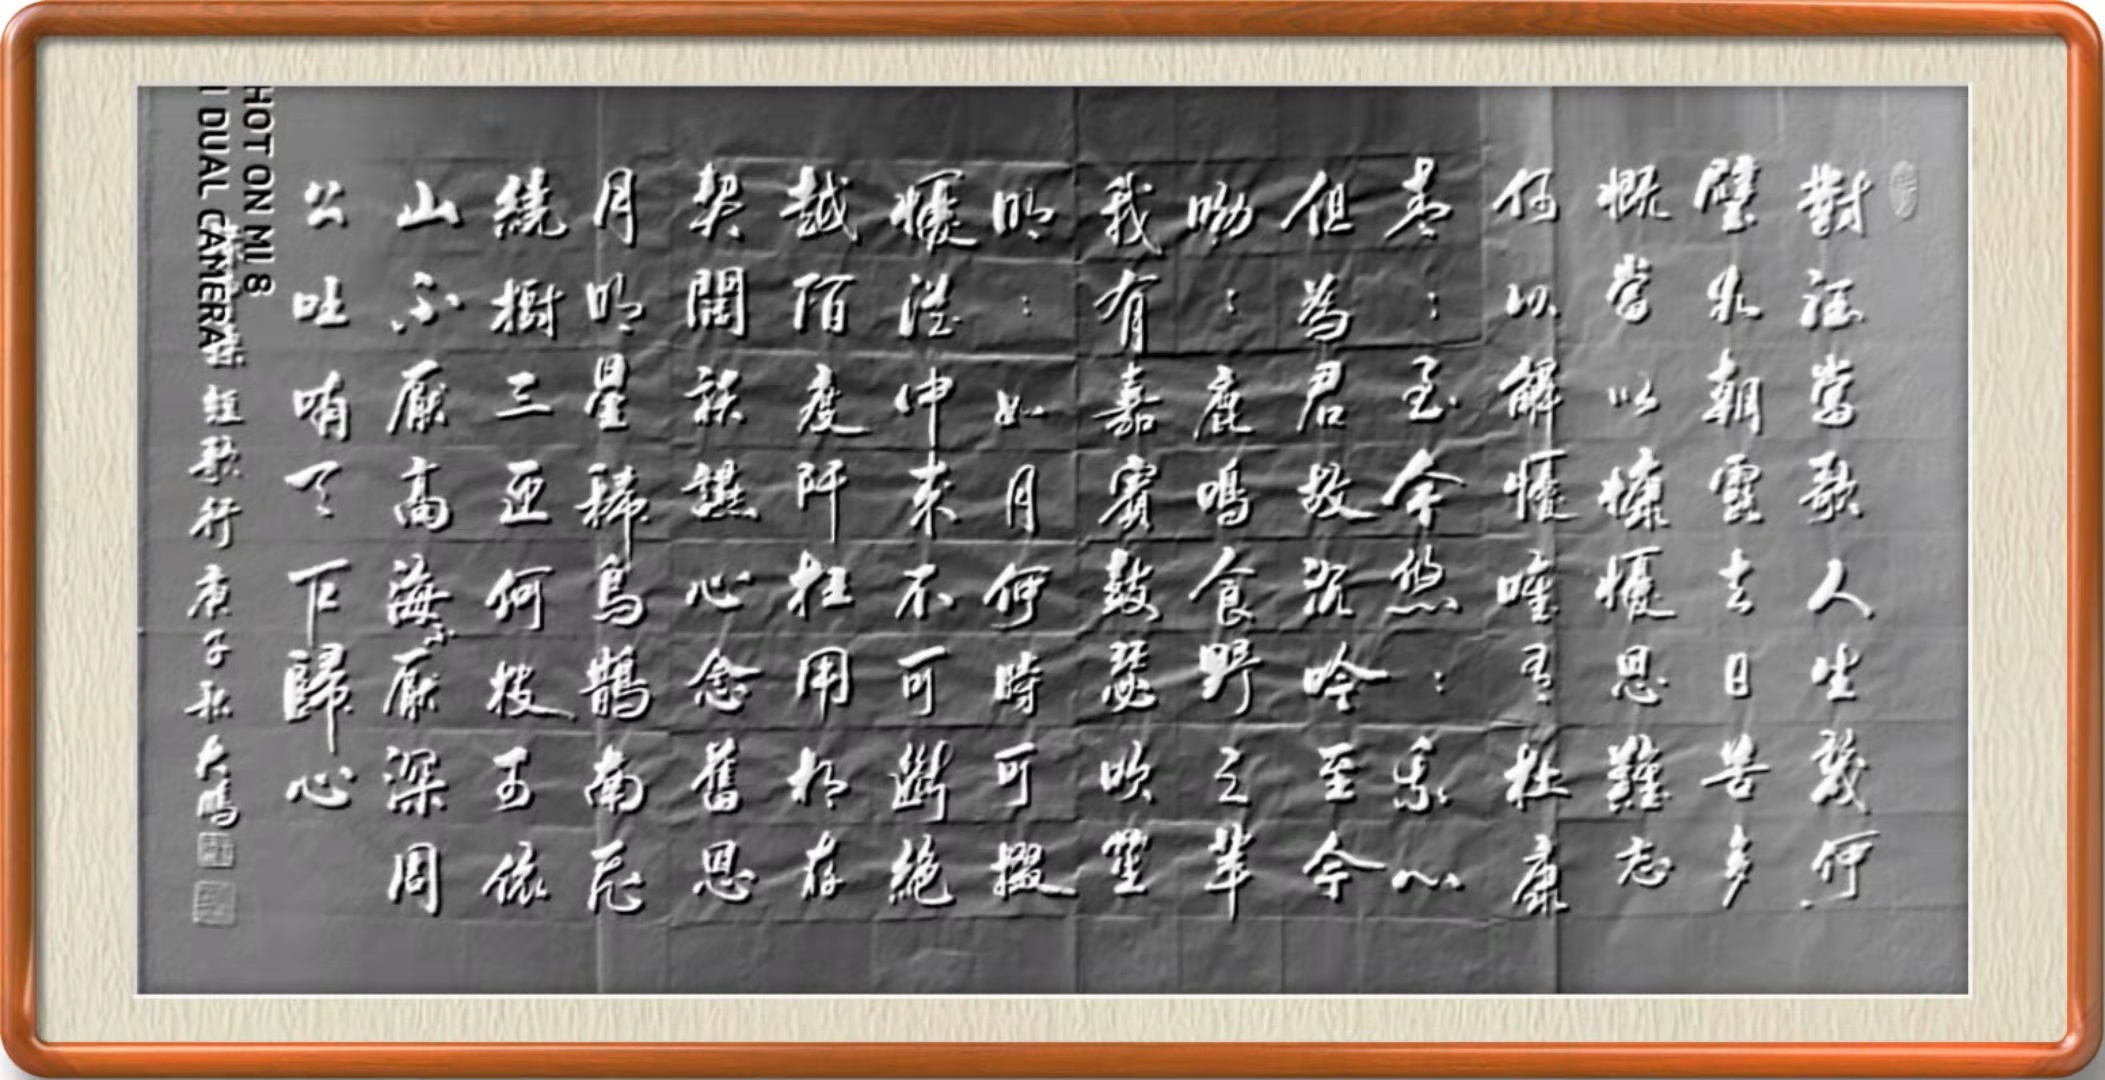 對酒當歌人生幾何
譬如朝露去日苦多
慨當以慷懮思難忘
何以解懮唯有杜康
青：今悠：心
但為君故沉吟至今
呦：鹿鳴食野之苹
我有嘉賓鼓瑟吹笙
明：如月何時可掇
懮從中來不可斷絕
越陌度阡枉用相存
契闊談讌心念舊恩
月明星稀烏鵲南飛
繞樹三匝何枝可依
山不厭高海不厭深周
公吐哺天下歸心
操短歌行庚子秋大鵬
HOT ON MI 8
I DUAL CAMERA